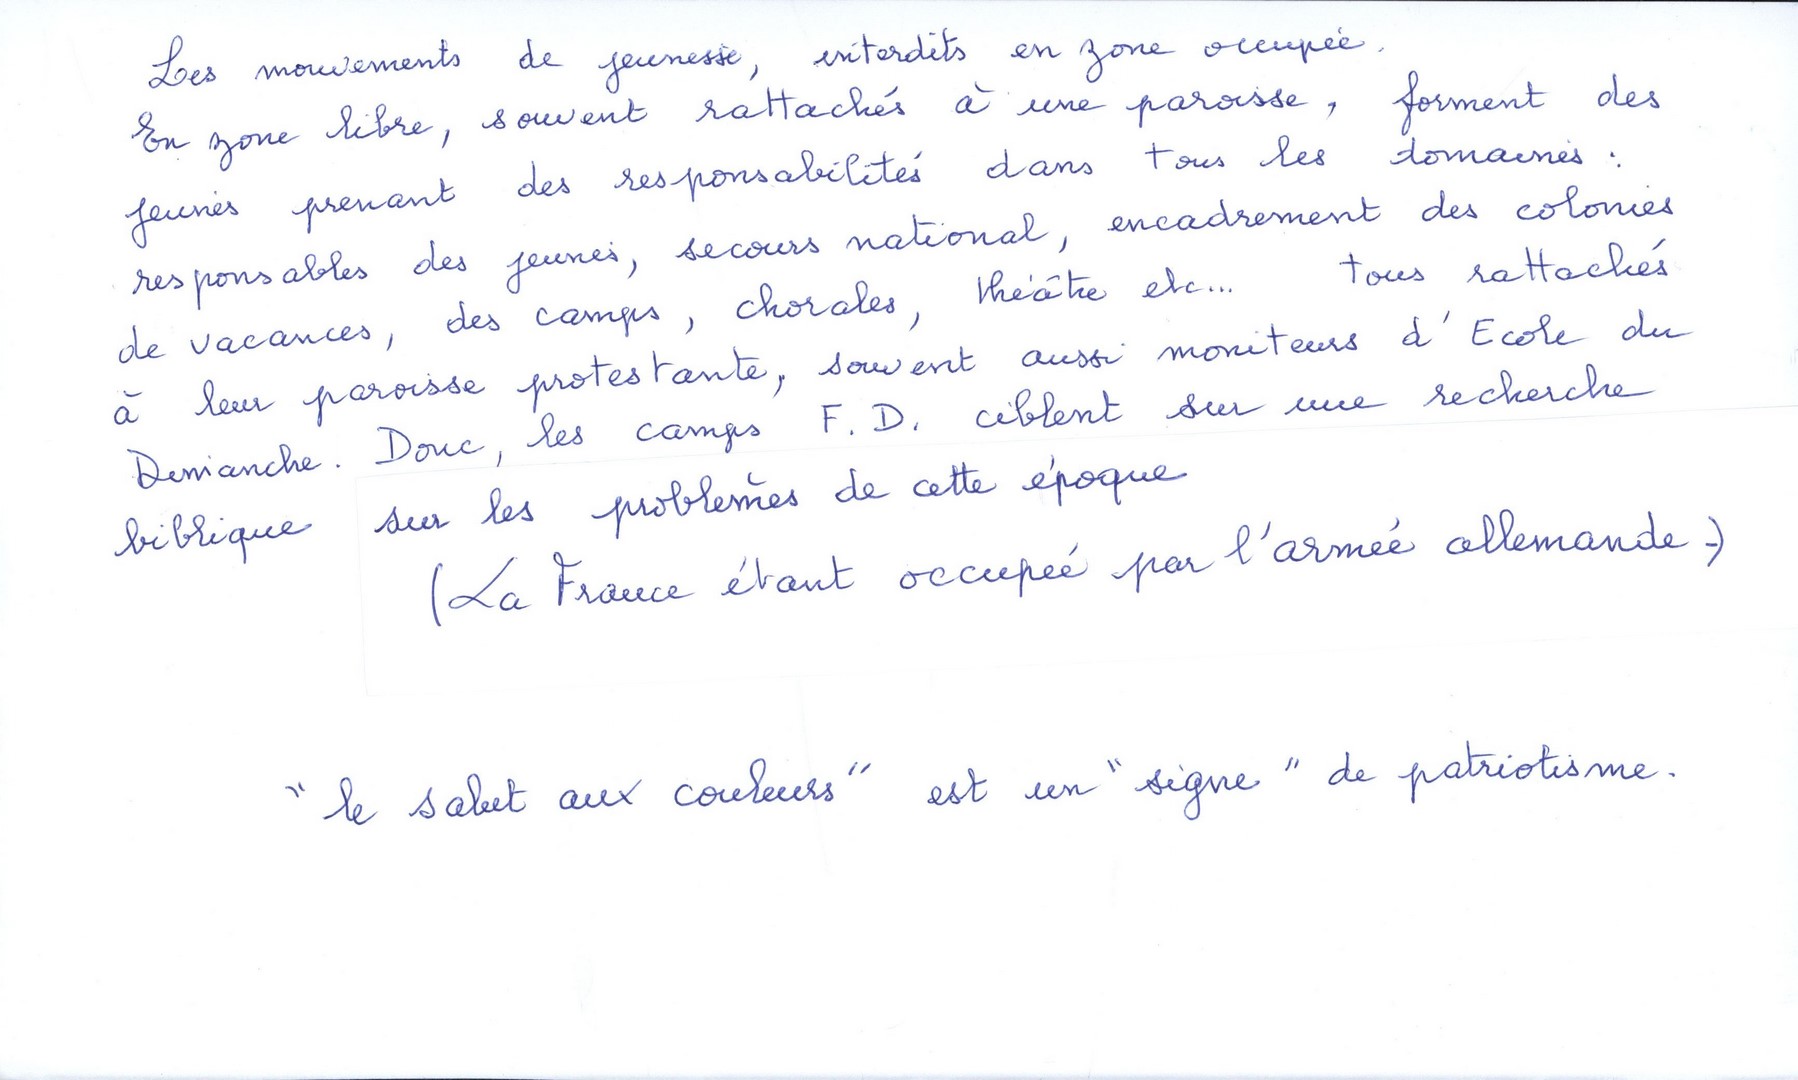 Les mouvements de jeunesse, interdits en zone occupée.
En zone libre, souvent rattachés à une paroisse, forment des
jeunes prenant des responsabilités dans tous les domaines :
responsables des jeunes, secours national, encadrement des colonies
de vacances, des camps, chorales, théâtre etc... tous rattachés
à leur paroisse protestante, souvent aussi moniteurs d'Ecole du
Dimanche. Donc, les camps F.D. ciblent sur une recherche
biblique sur les problèmes de cette époque
(La France étant occupée par l'armée allemande-)
"le salut aux couleurs" est un "signe" de patriotisme.